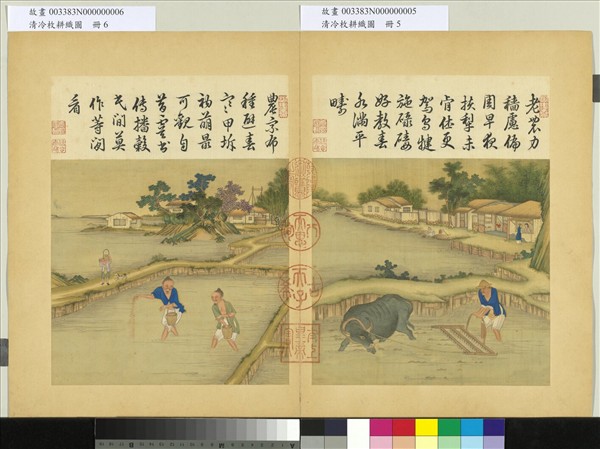 故畫 003383N000000006
清冷枚耕織圖 冊 6
故畫 003383N000000005
清冷枚耕織圖 冊 5
老農力
穡慮偏
周早夜
扶犁未
肯休更
駕烏犍
施碌碡
好教春
水滿平
疇
農家布
種避春
寒甲坼
初萌最
可觀自
昔虞書
傳播穀
民間莫
作等閒
看